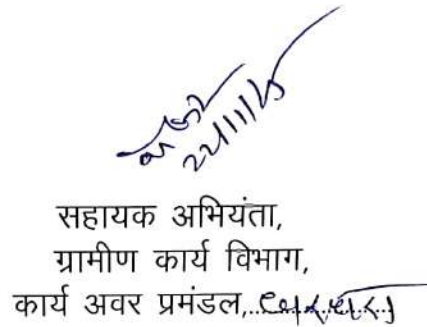 22/11/25
सहायक अभियंता,
ग्रामीण कार्य विभाग,
कार्य अवर प्रमंडल,